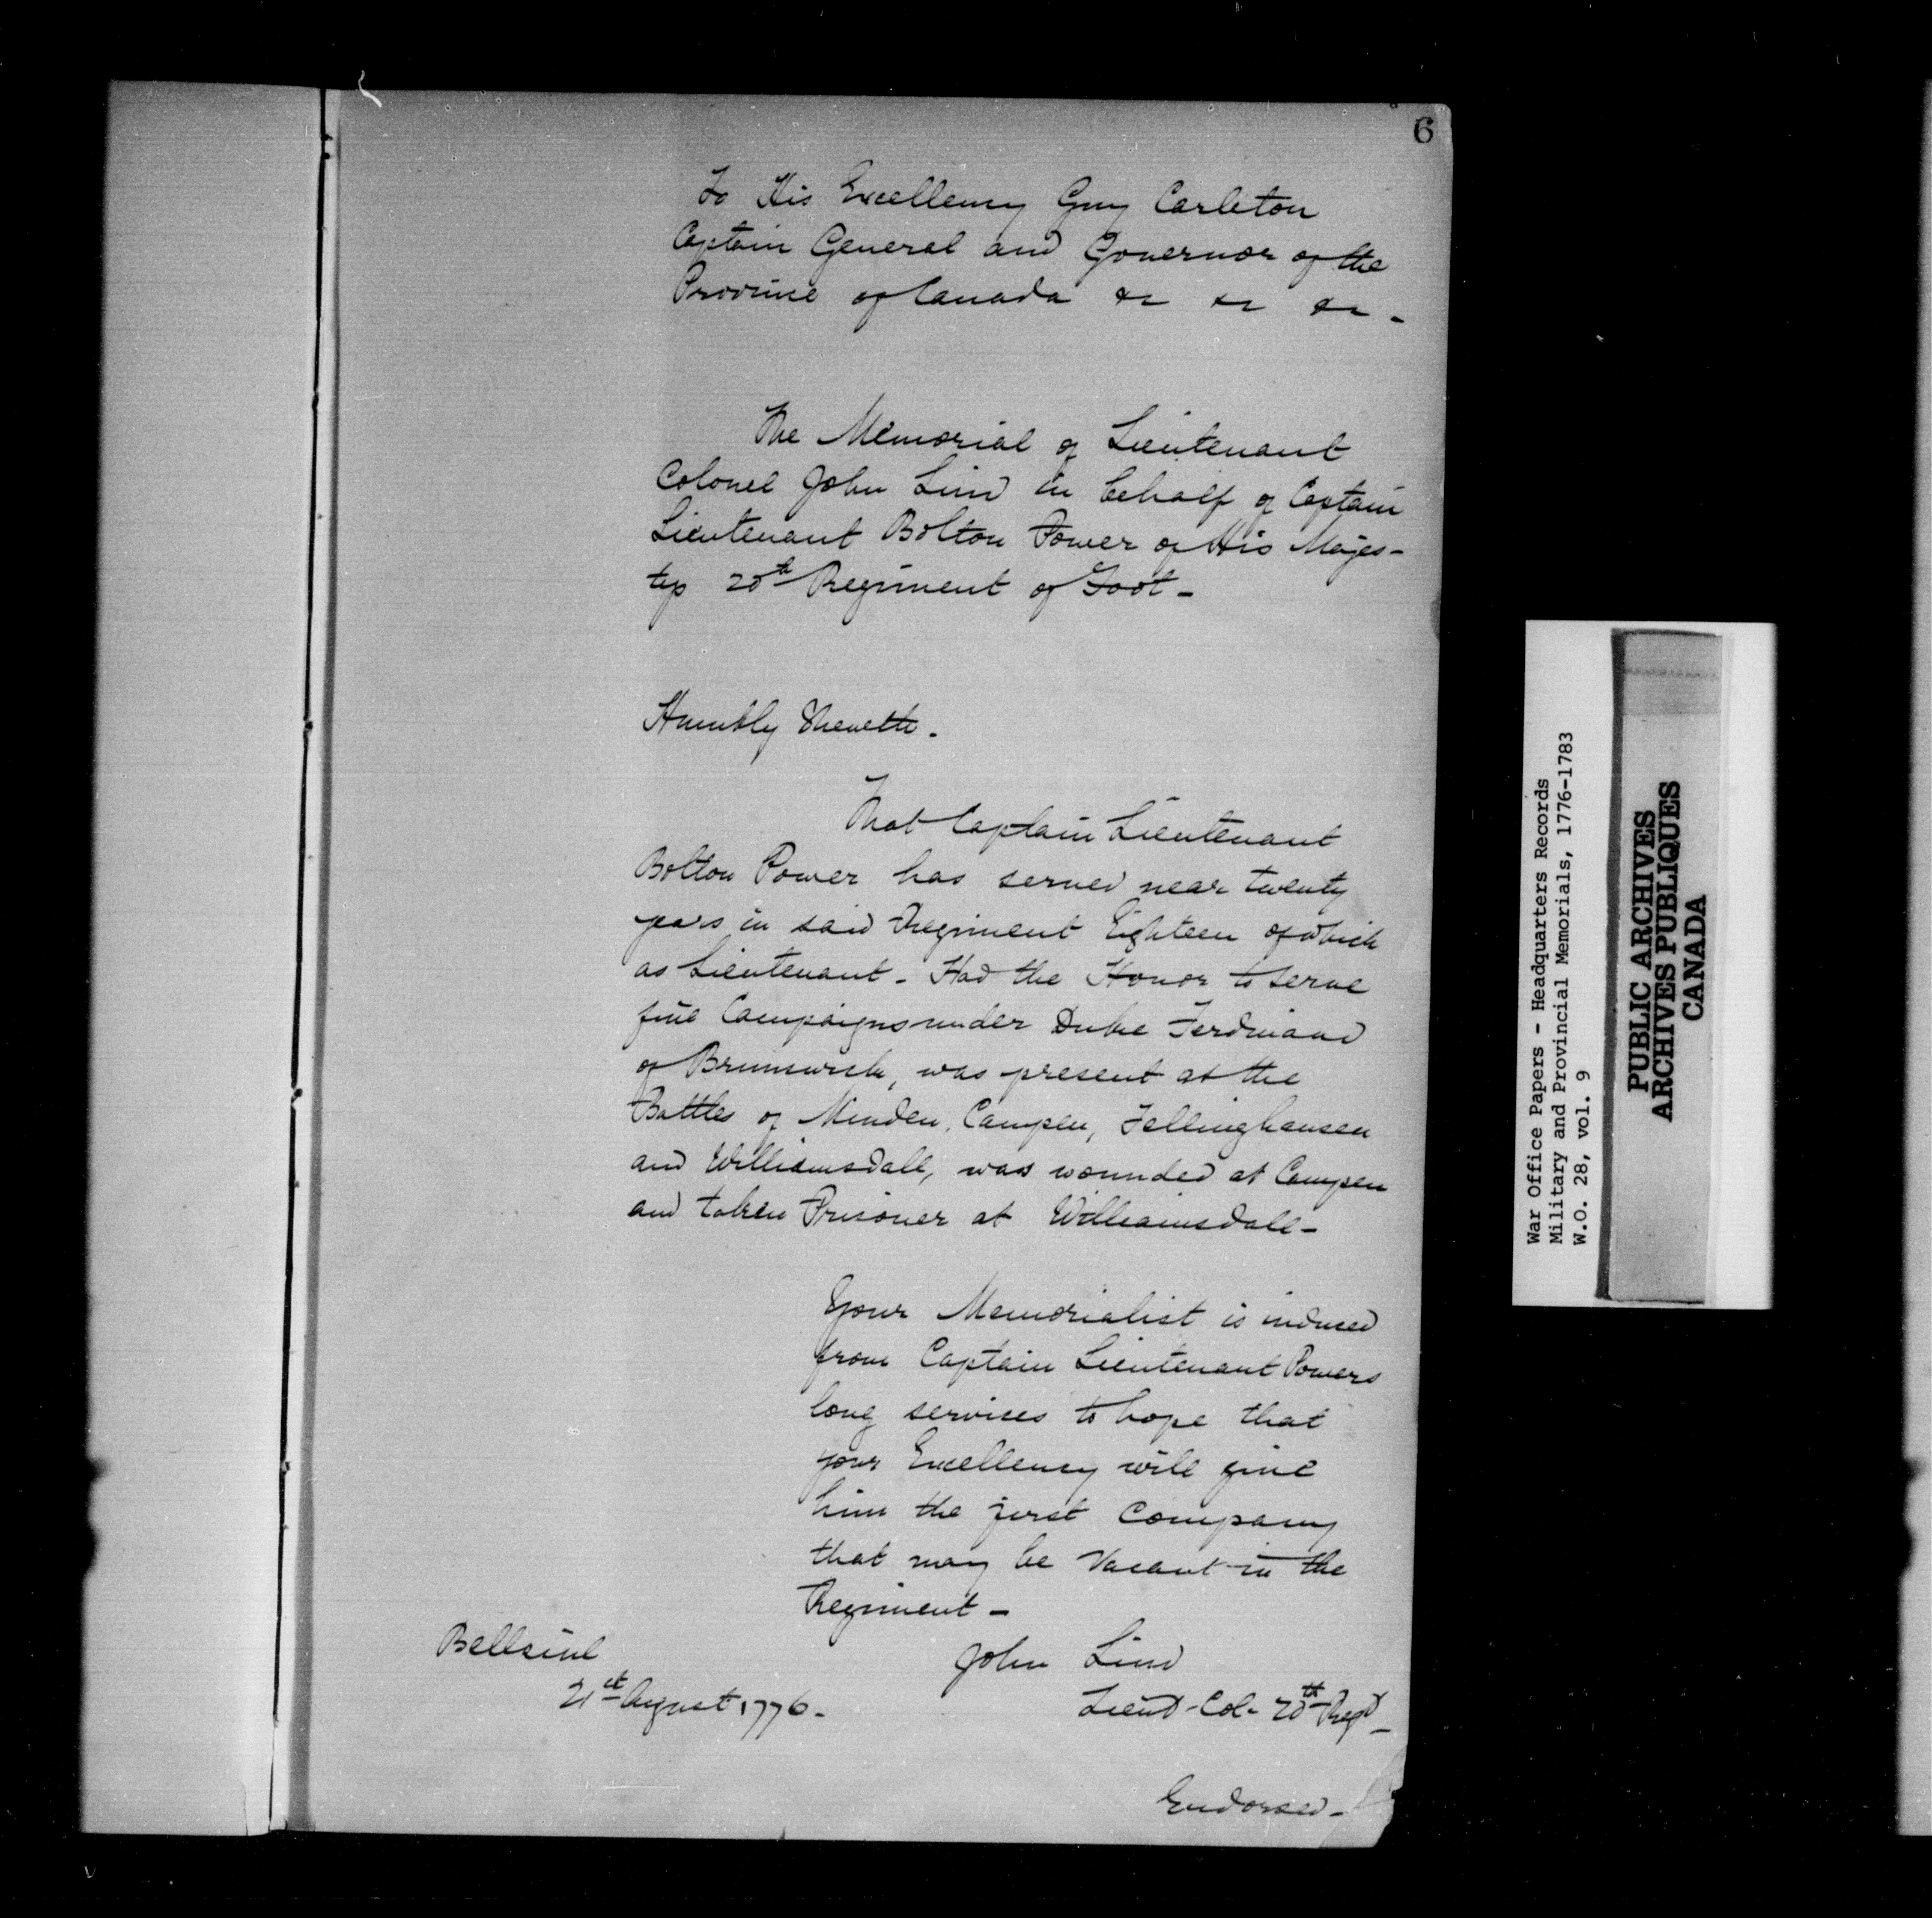 6
To His Excellency Guy Carleton
Captain General and Governor of the
Province of Canada &c &c &c -
The Memorial of Lieutenant
Colonel John Lind in behalf of Captain
Lieutenant Bolton Power of His Majes-
tys 20th Regiment of Foot -
Humbly Sheweth.
That Captain Lieutenant
Bolton Power has served near twenty
years in said Regiment Eighteen of which
as Lieutenant - Had the Honor to serve
five Campaigns under Duke Ferdinand
of Brunswick, was present at the
Battles of Minden, Campen, Fellinghausen
and Williamsdall, was wounded at Campen
and taken Prisoner at Williamsdall -
Your Memorialist is induced
from Captain Lieutenant Powers
long services to hope that
your Excellency will give
him the first Company
that may be Vacant in the
Regiment -
John Lind
Lieut - Col - 20th Regt -
21st August 1776 -
Endorsed -
War Office Papers - Headquarters Records
Military and Provincial Memorials, 1776-1783
W.O. 28, vol. 9
PUBLIC ARCHIVES
ARCHIVES PUBLIQUES
CANADA